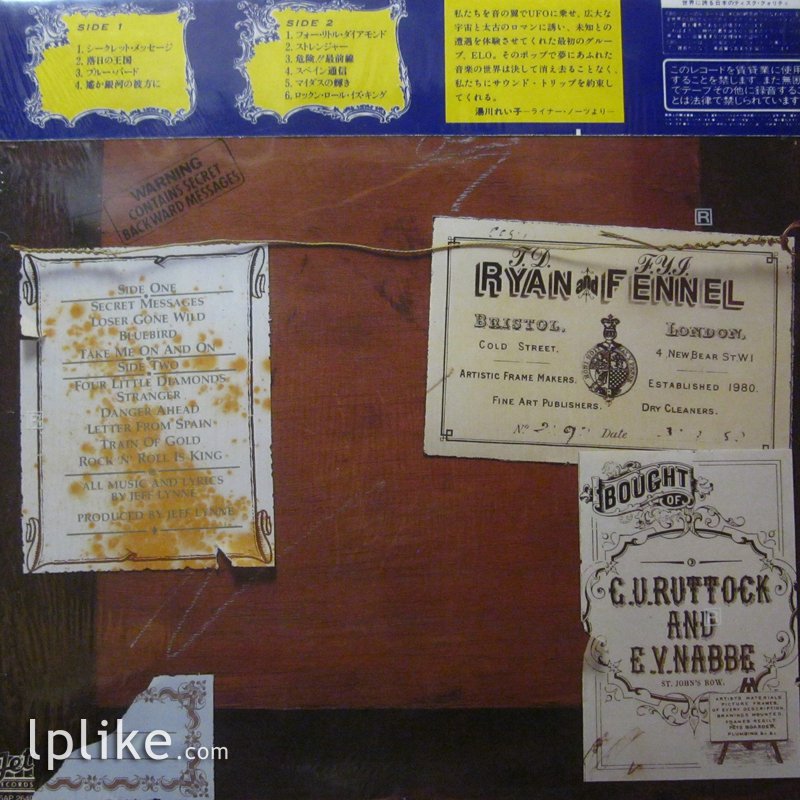 SIDE 1
1. シークレット・メッセージ
2. 落日の王国
3. ブルー・バード
4. 遙か銀河の彼方に
SIDE 2
1. フォー・リトル・ダイアモンド
2. ストレンジャー
3. 危険!!最前線
4. スペイン通信
5. マイダスの輝き
6. ロックン・ロール・イズ・キング
私たちを音の翼でUFOに乗せ、広大な
宇宙と太古のロマンに誘い、未知との
遭遇を体験させてくれた最初のグルー
プ、ELO。そのポップで夢にあふれた
音楽の世界は決して消え去ることなく、
私たちにサウンド・トリップを約束し
てくれる。
湯川れい子—ライナー・ノーツより—
世界に誇る日本のディスク・クォリティ
このレコードを賃貸業に使用
することを禁じます。又無断
でテープその他に録音するこ
とは法律で禁じられています
WARNING
CONTAINS SECRET
BACKWARD MESSAGES
R
SIDE ONE
SECRET MESSAGES
LOSER GONE WILD
BLUEBIRD
TAKE ME ON AND ON
SIDE TWO
FOUR LITTLE DIAMONDS
STRANGER
DANGER AHEAD
LETTER FROM SPAIN
TRAIN OF GOLD
ROCK 'N' ROLL IS KING
ALL MUSIC AND LYRICS
BY JEFF LYNNE
PRODUCED BY JEFF LYNNE
T.D. F.Y.I.
RYAN and FENNEL
BRISTOL. LONDON.
COLD STREET. 4 NEW BEAR ST W1
ARTISTIC FRAME MAKERS. ESTABLISHED 1980.
FINE ART PUBLISHERS. DRY CLEANERS.
No. Date
BOUGHT
OF
C.U.RUTTOCK
AND
E.V.NABBE
ST. JOHN'S ROW.
ARTISTS MATERIALS
PICTURE FRAMES
OF EVERY DESCRIPTION
DRAWINGS MOUNTED
FRAMES REGILT
PETS BOARDED
PLUMBING &c &c
jet
RECORDS
lplike.com